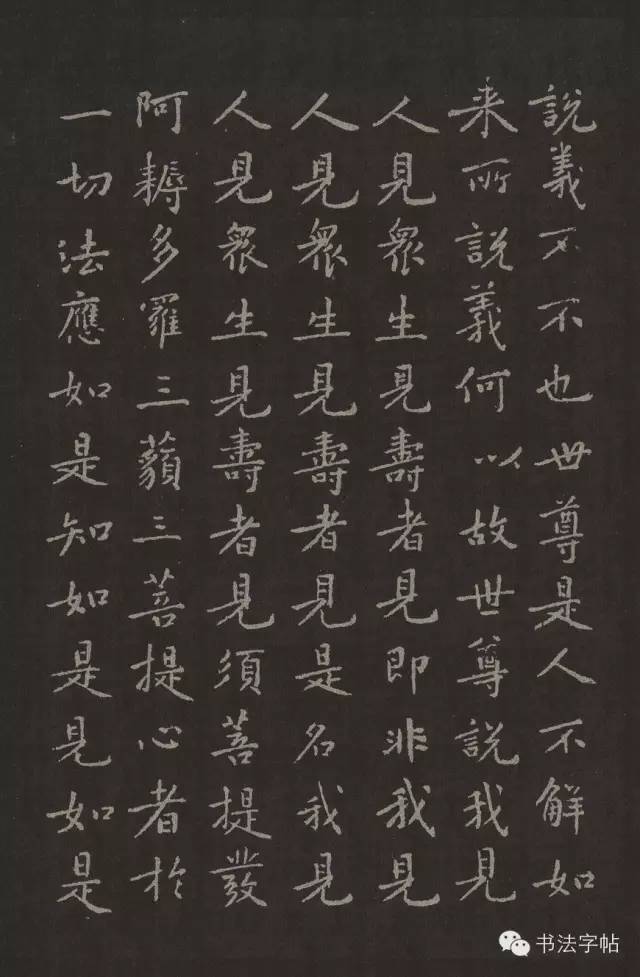 說義不不也世尊是人不解如
来所說義何以故世尊說我見
人見眾生見壽者見即非我見
人見眾生見壽者見是名我見
人見眾生見壽者見須菩提發
阿耨多羅三藐三菩提心者於
一切法應如是知如是見如是
书法字帖